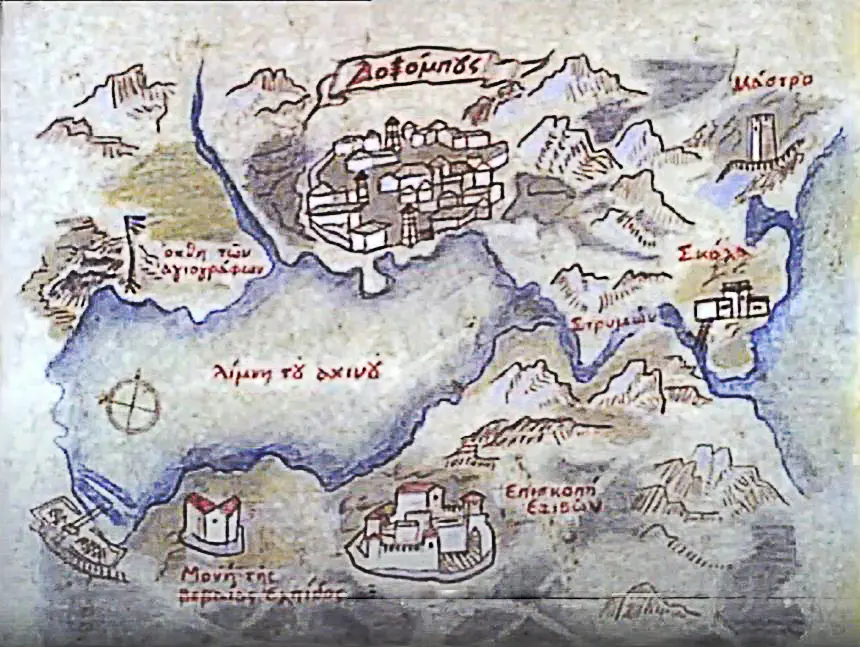 Δοξόμπους
Μάστρο
Σκάλα
ὄχθη τῶν
ἁγιογράφων
Στρυμών
λίμνη τȣ ἀχινȣ
Επισκοπή
Εζιβῶν
Μονή της
βεβαίας ἐλπίδος